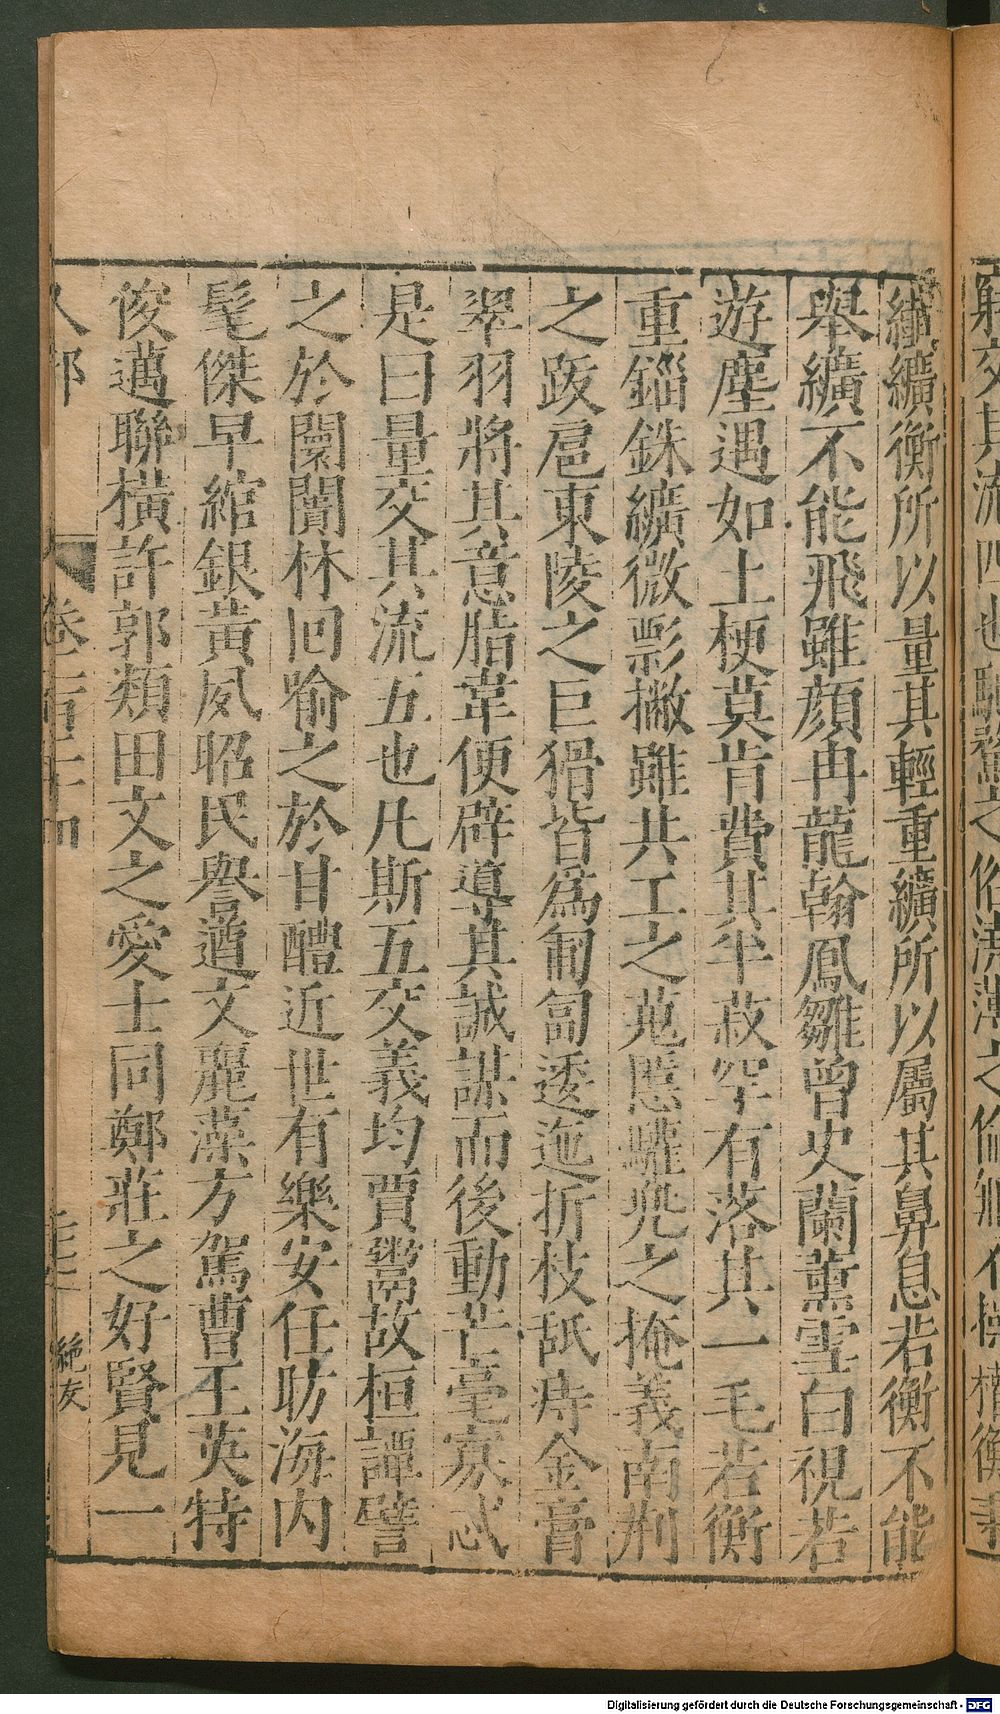 窮交其流四也馳騖之俗澆薄之倫無不操權衡
纖纊衡所以量其輕重纊所以屬其鼻息若衡不能
舉纊不能飛雖顏冉龍翰鳳雛曾史蘭薫雪白視若
遊塵遇如土梗莫肯費其半菽罕有落其一毛若衡
重錙銖纊微彯撇雖共工之蒐慝驩兜之掩義南荆
之跋扈東陵之巨猾皆爲匍匐逶迤折枝舐痔金膏
翠羽將其意脂韋便辟導其誠謀而後動芒毫寡忒
是曰量交其流五也凡斯五交義均賈鬻故桓譚譬
之於闤闠林回喻之於甘醴近世有樂安任昉海内
髦傑早綰銀黃夙昭民譽遒文麗藻方駕曹王英特
俊邁聯橫許郭類田文之愛士同鄭莊之好賢見一
人部
絶友
Digitalisierung gefördert durch die Deutsche Forschungsgemeinschaft - DFG